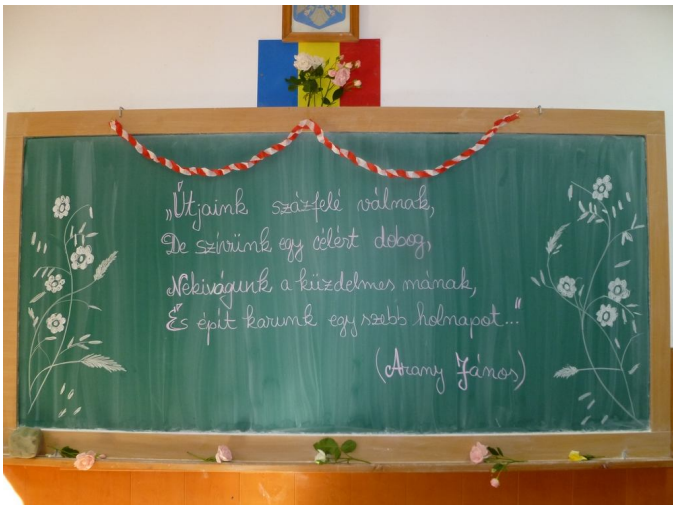 „Útjaink százfelé válnak,
De szívünk egy célért dobog,
Nekivágunk a küzdelmes mának,
És épít karunk egy szebb holnapot..."
(Arany János)